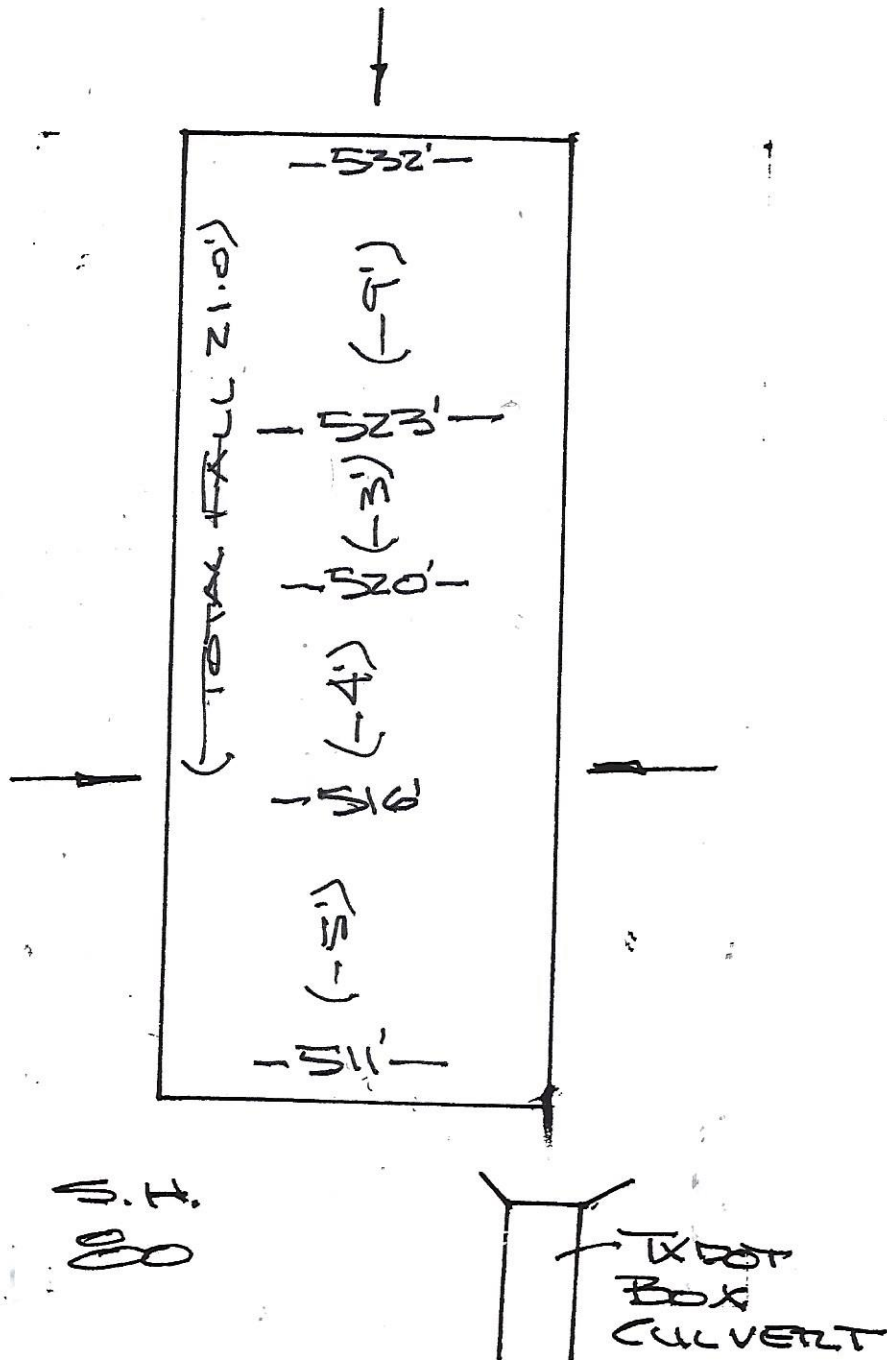 -532'-
(-9')
(TOTAL FALL 21.0')
-523'-
(-3')
-520'-
(-4')
-516'
(-5')
-511'-
S.H.
80
TXDOT
BOX
CULVERT